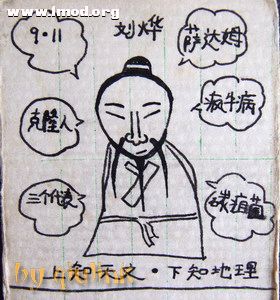 www.lmod.org
9·11
刘烨
萨达姆
克隆人
疯牛病
三个代表
炭疽菌
上知天文·下知地理